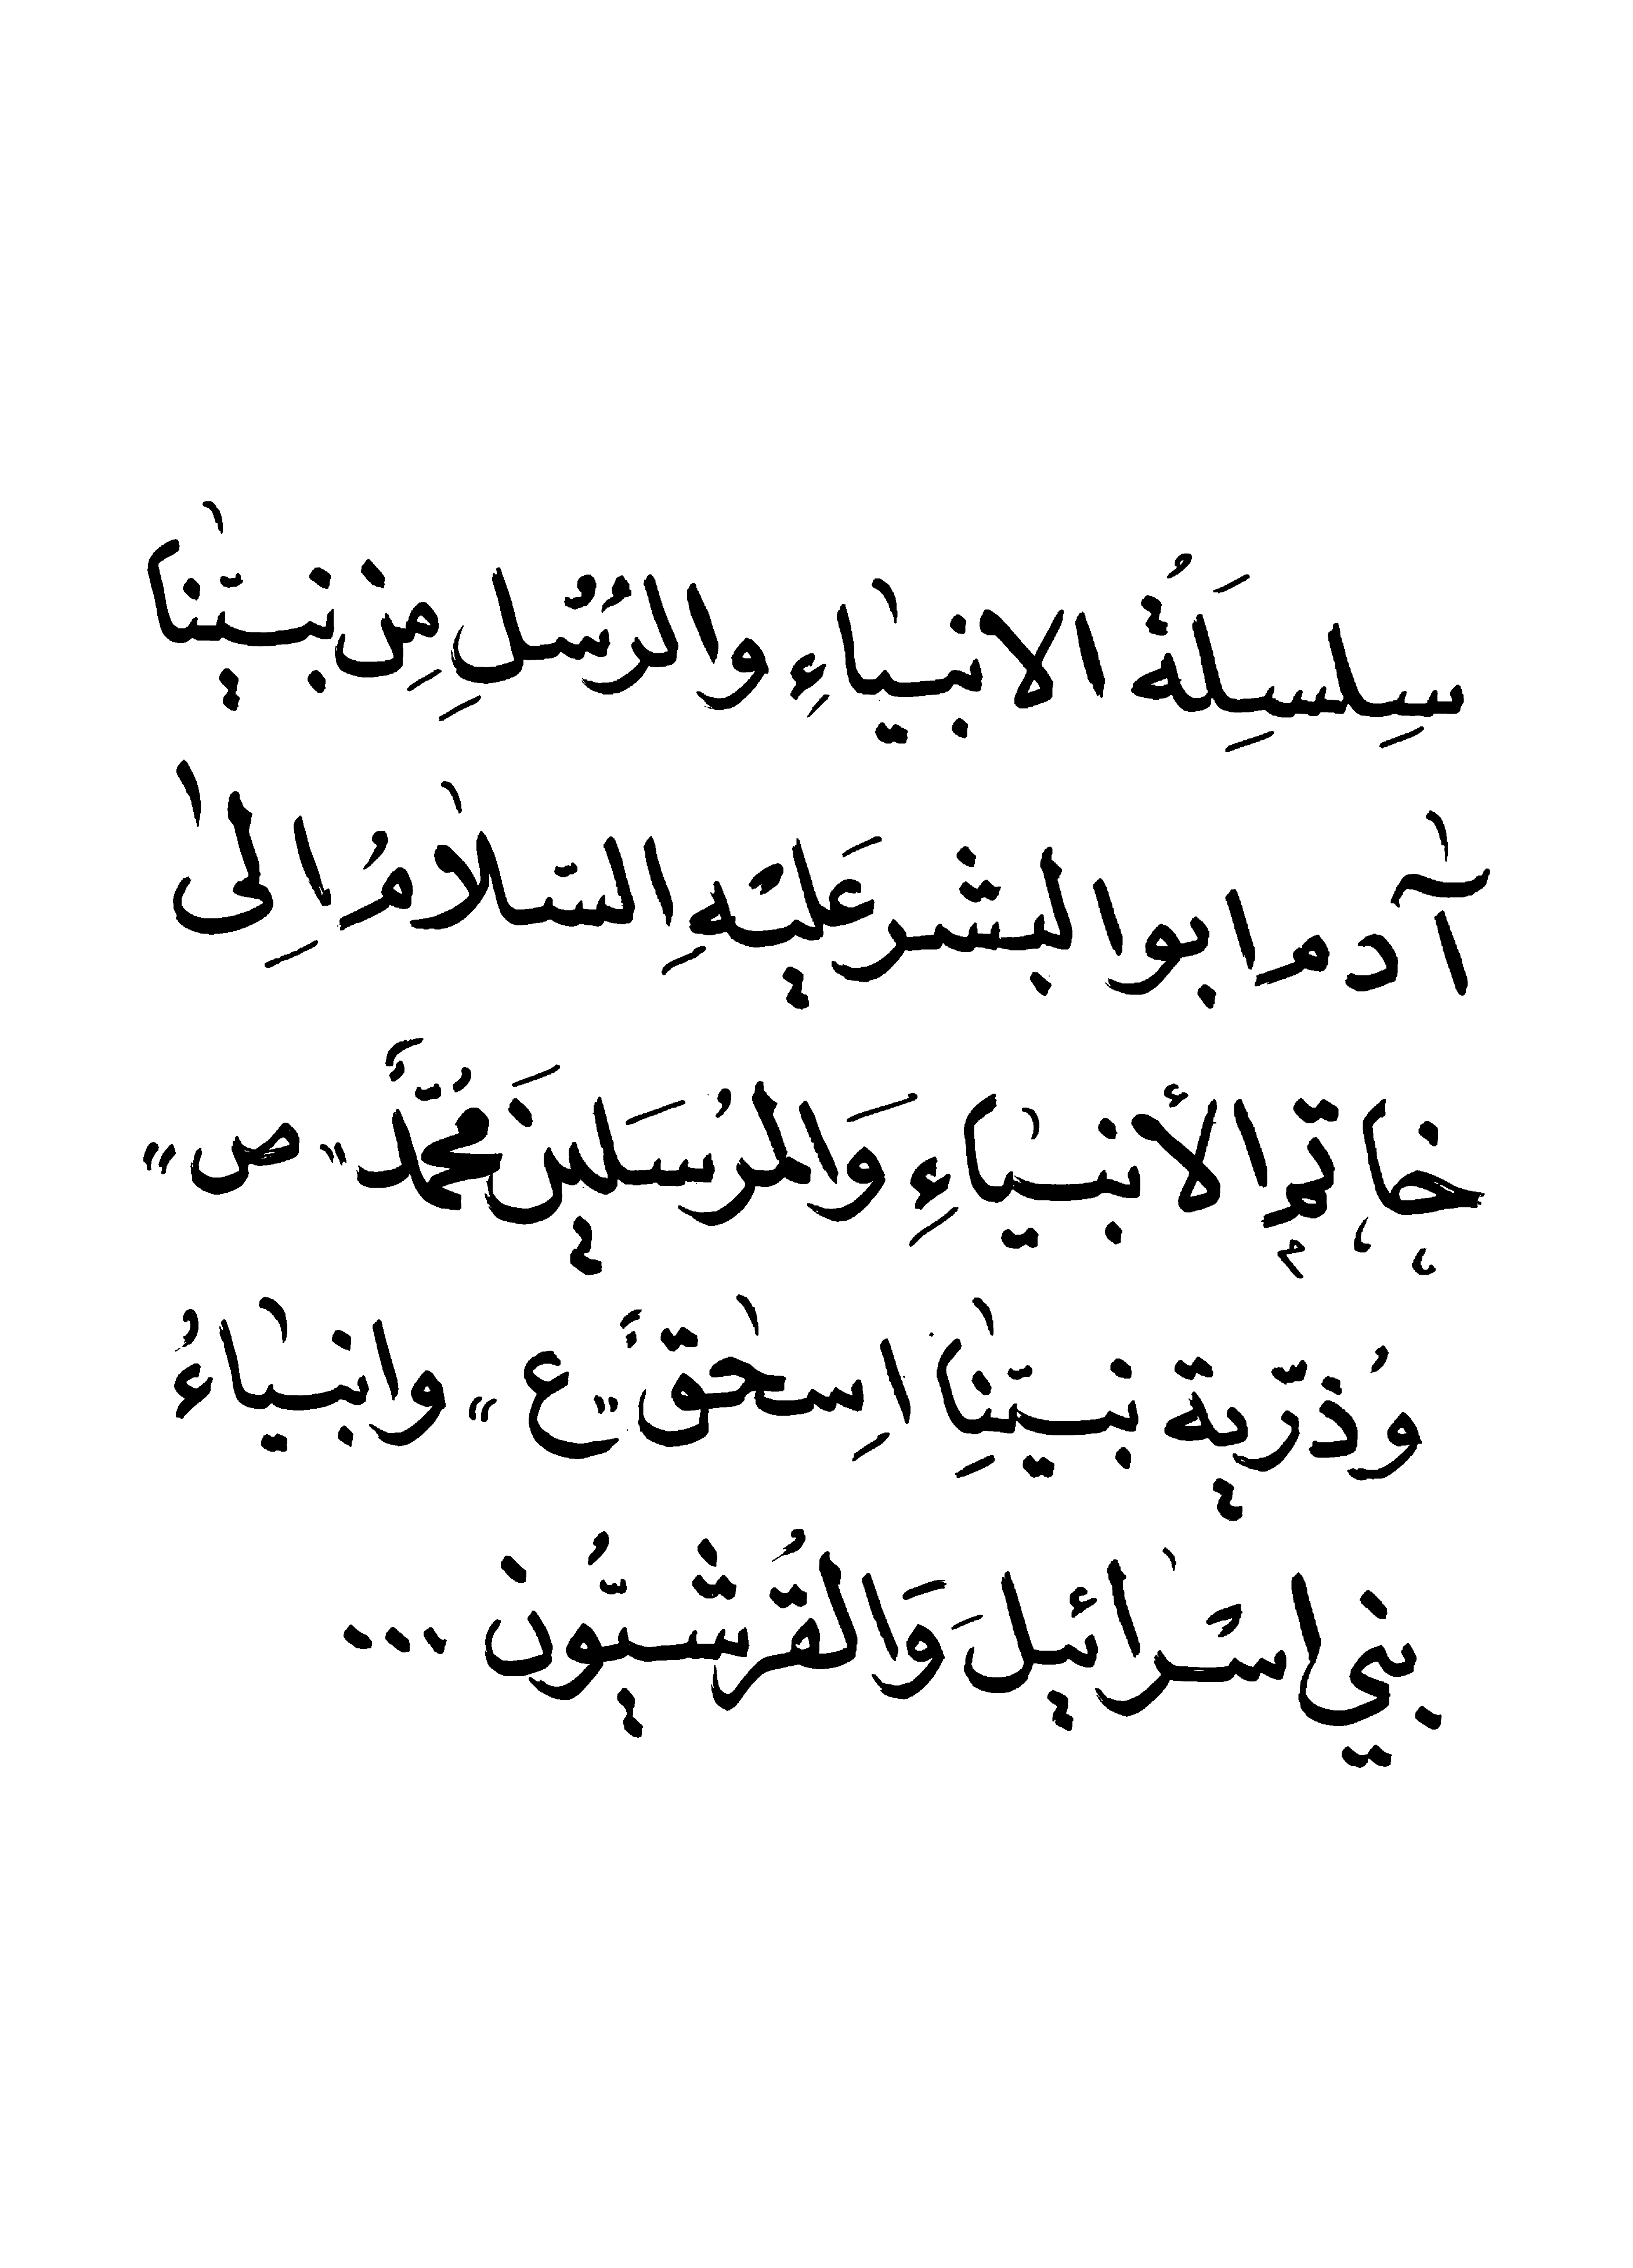 سِلسِلَةُ الانبياءِ والرسُلِ مِن نبيّنا
آدم ابوا لبشر عَليهِ السّلامُ اِلى
خاتمِ الأنبياءِ وَالمرُسَلينَ مُحمّدً «ص»
وذُرّية نبيّنِا اِسحٰقً «ع» وانبياءُ
بني اسرائيلَ وَالقُرشيُّون ...